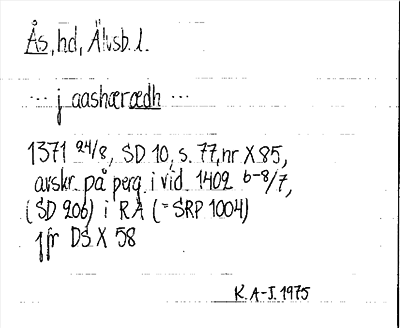 Ås, hd, Älvsb. l.
... j aashærædh ...
1371 24/8, SD 10, s. 77, nr X 85,
avskr. på perg. i vid. 1402 6-8/7,
(SD 206) i RA (= SRP 1004)
jfr DS X 58
K. A-J. 1975